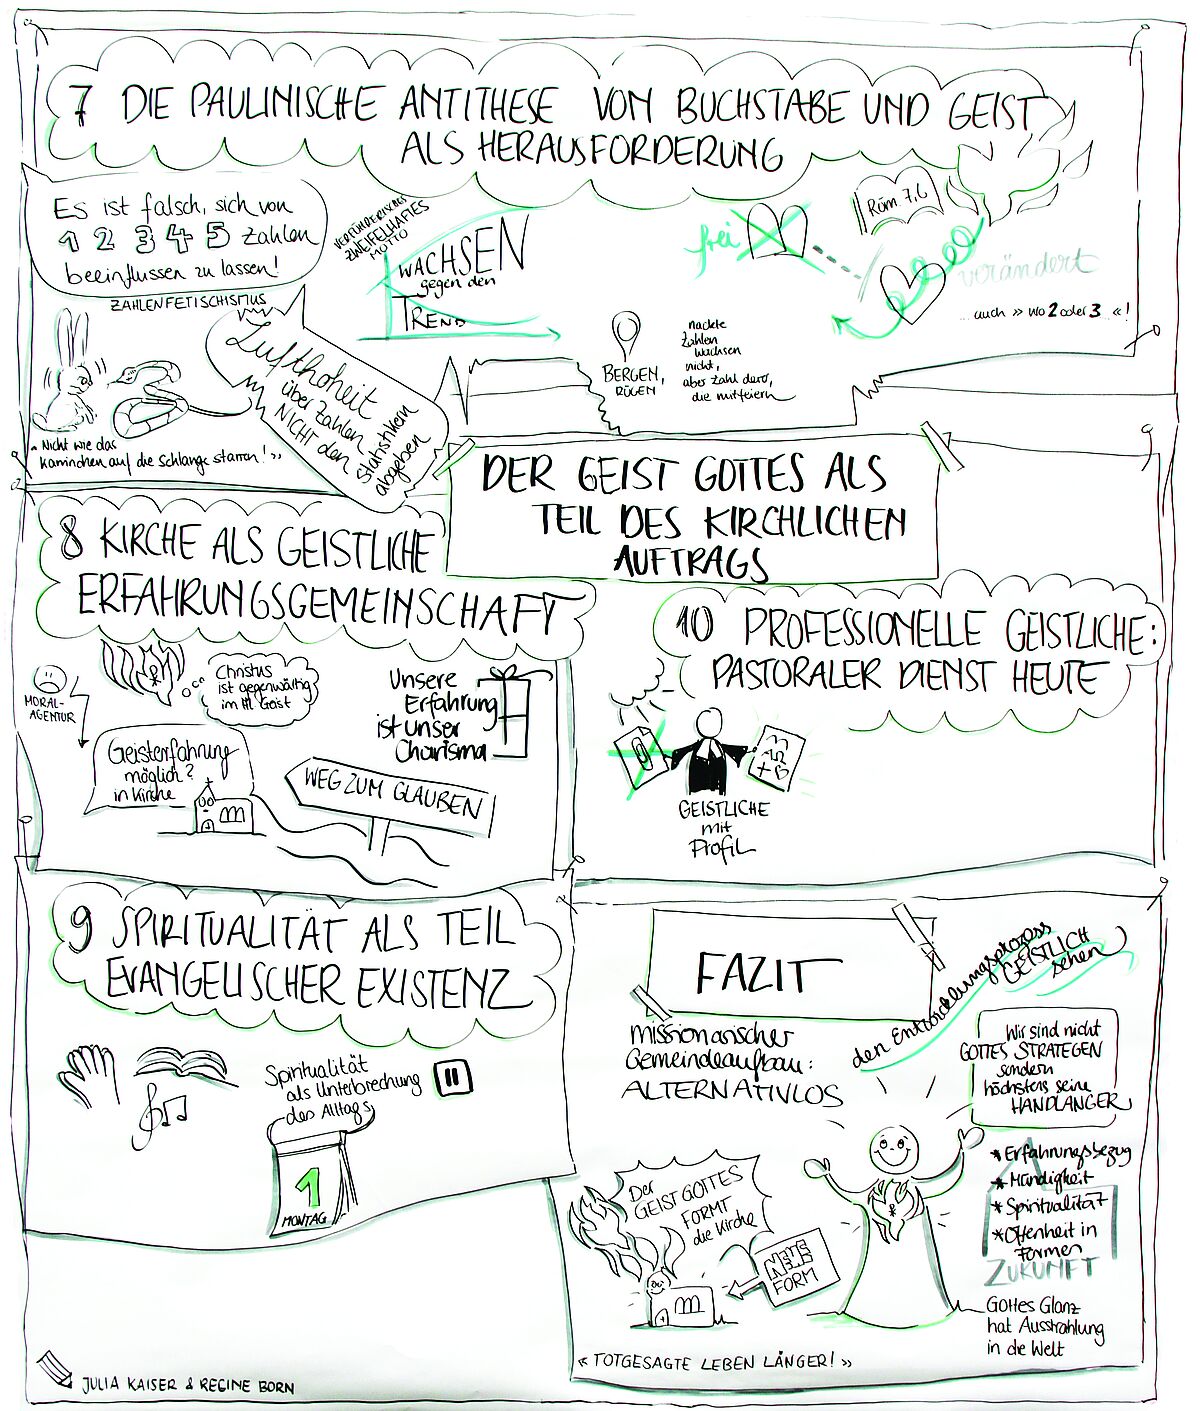 7 DIE PAULINISCHE ANTITHESE VON BUCHSTABE UND GEIST
ALS HERAUSFORDERUNG
Es ist falsch, sich von
1 2 3 4 5 Zahlen
beeinflussen zu lassen!
ZAHLENFETISCHISMUS
« Nicht wie das
Kaninchen auf die Schlange starren! »
Lufthoheit
über Zahlen
NICHT den
Statistikern
abgeben
VERFÜHRERISCHES
ZWEIFELHAFTES
MOTTO
WACHSEN
gegen den
TREND
BERGEN,
RÜGEN
nackte
Zahlen
wachsen
nicht,
aber Zahl derer,
die mitfeiern
frei
Röm. 7,6
verändert
... auch » wo 2 oder 3 ..«!
DER GEIST GOTTES ALS
TEIL DES KIRCHLICHEN
AUFTRAGS
8 KIRCHE ALS GEISTLICHE
ERFAHRUNGSGEMEINSCHAFT
MORAL-
AGENTUR
Christus
ist gegenwärtig
im Hl. Geist
Unsere
Erfahrung
ist unser
Charisma
Geisterfahrung
möglich?
in Kirche
WEG ZUM GLAUBEN
9 SPIRITUALITÄT ALS TEIL
EVANGELISCHER EXISTENZ
Spiritualität
als Unterbrechung
des Alltags
1
MONTAG
10 PROFESSIONELLE GEISTLICHE:
PASTORALER DIENST HEUTE
GEISTLICHE
mit
Profil
FAZIT
missionarischer
Gemeindeaufbau:
ALTERNATIVLOS
den Entwicklungsprozess
GEISTLICH
sehen
Wir sind nicht
GOTTES STRATEGEN
sondern
höchstens seine
HANDLANGER
* Erfahrungsbezug
* Mündigkeit
* Spiritualität
* Offenheit in
Formen
ZUKUNFT
Gottes Glanz
hat Ausstrahlung
in die Welt
Der
GEIST GOTTES
FORMT
die Kirche
FORM
« TOTGESAGTE LEBEN LÄNGER! »
JULIA KAISER & REGINE BORN